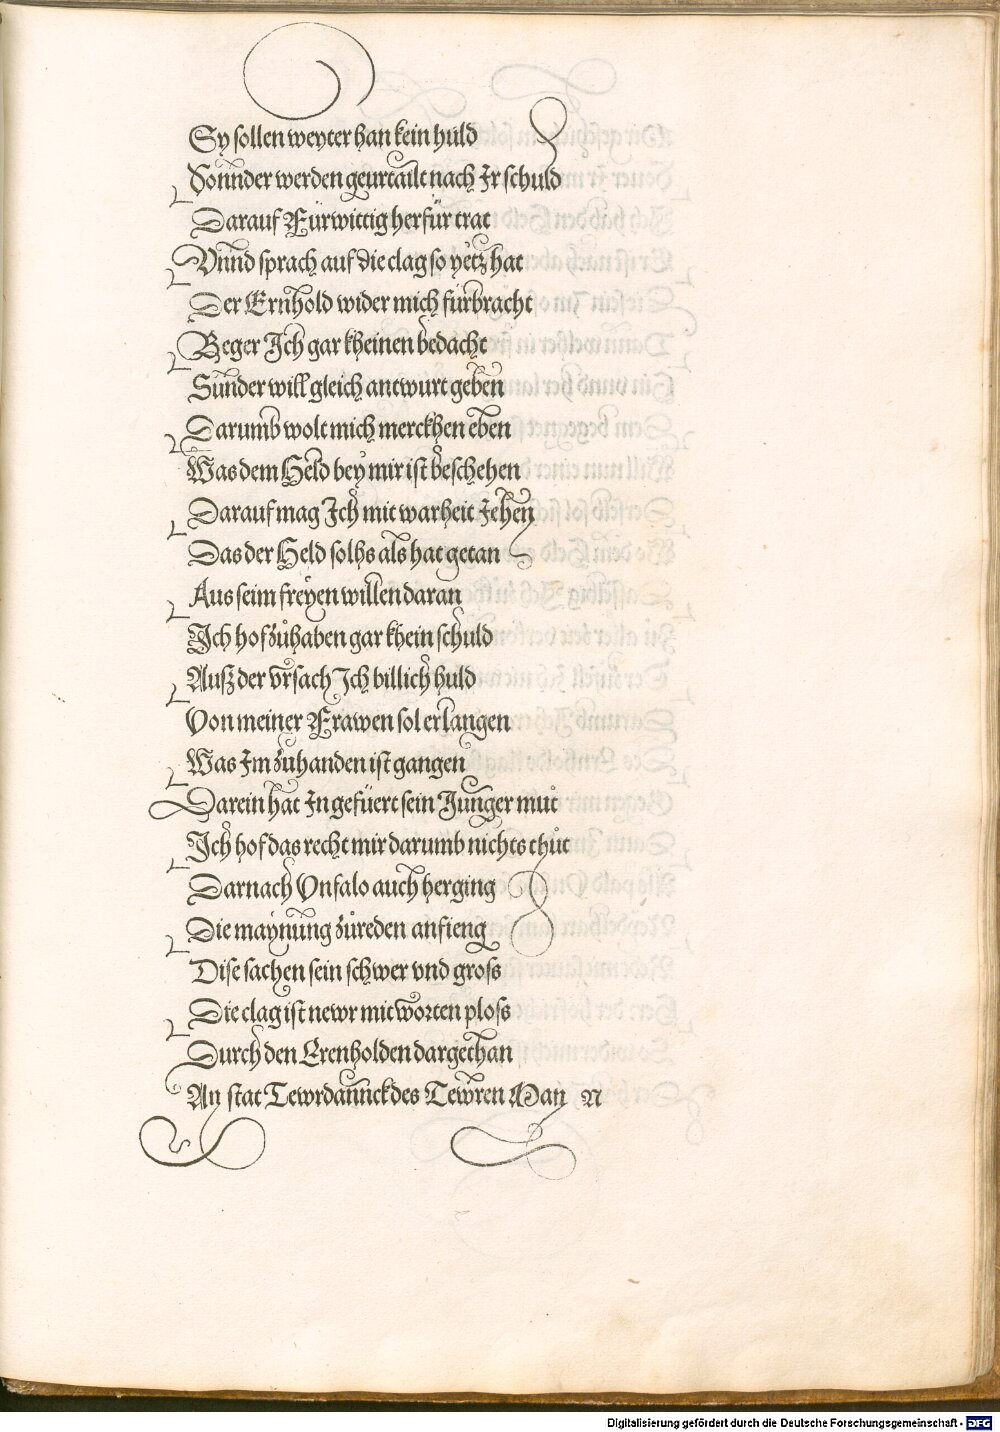 Sy sollen weyter han kein huld
Sonnder werden geurtailt nach Ir schuld
Darauf Fürwittig herfür trat
Vnnd sprach auf die clag so yetz hat
Der Ernhold wider mich fürbracht
Beger Ich gar kheinen bedacht
Sunder will gleich antwurt geben
Darumb wolt mich merckhen eben
Was dem Held bey mir ist beschehen
Darauf mag Ich mit warheit Jehen
Das der Held solhs als hat getan
Aus seim freyen willen daran
Ich hof zůhaben gar khein schuld
Ausz der vrsach Ich billich huld
Von meiner Frawen sol erlangen
Was Im zuhanden ist gangen
Darein hat In gefüert sein Junger můt
Ich hof das recht mir darumb nichts thůt
Darnach Vnfalo auch herging
Die maynung zůreden anfieng
Dise sachen sein schwer vnd gross
Die clag ist newr mit worten ploss
Durch den Erenholden dargethan
An stat Tewrdannck des Tewren Man